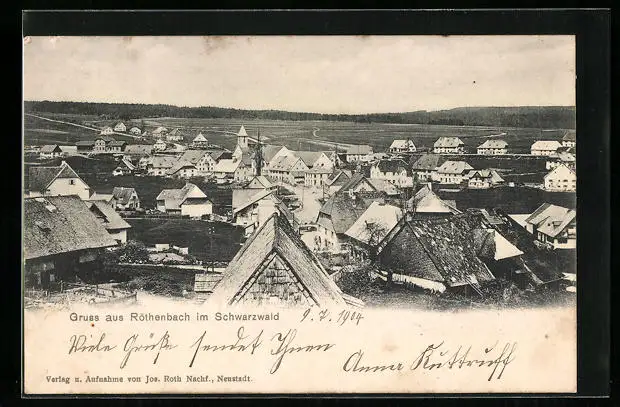 Gruss aus Röthenbach im Schwarzwald 9.7.1904
Viele Grüße sendet Ihnen
Anna Kuttruff
Verlag u. Aufnahme von Jos. Roth Nachf., Neustadt.